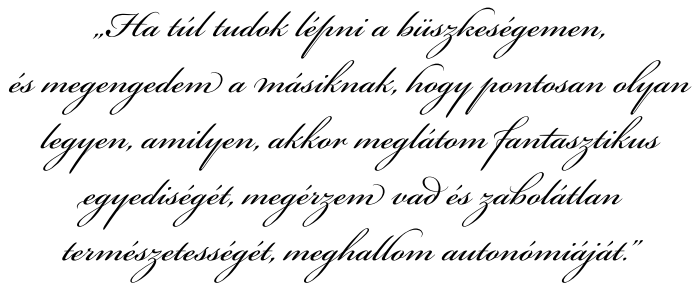 „Ha túl tudok lépni a büszkeségemen,
és megengedem a másiknak, hogy pontosan olyan
legyen, amilyen, akkor meglátom fantasztikus
egyediségét, megérzem vad és zabolátlan
természetességét, meghallom autonómiáját.”